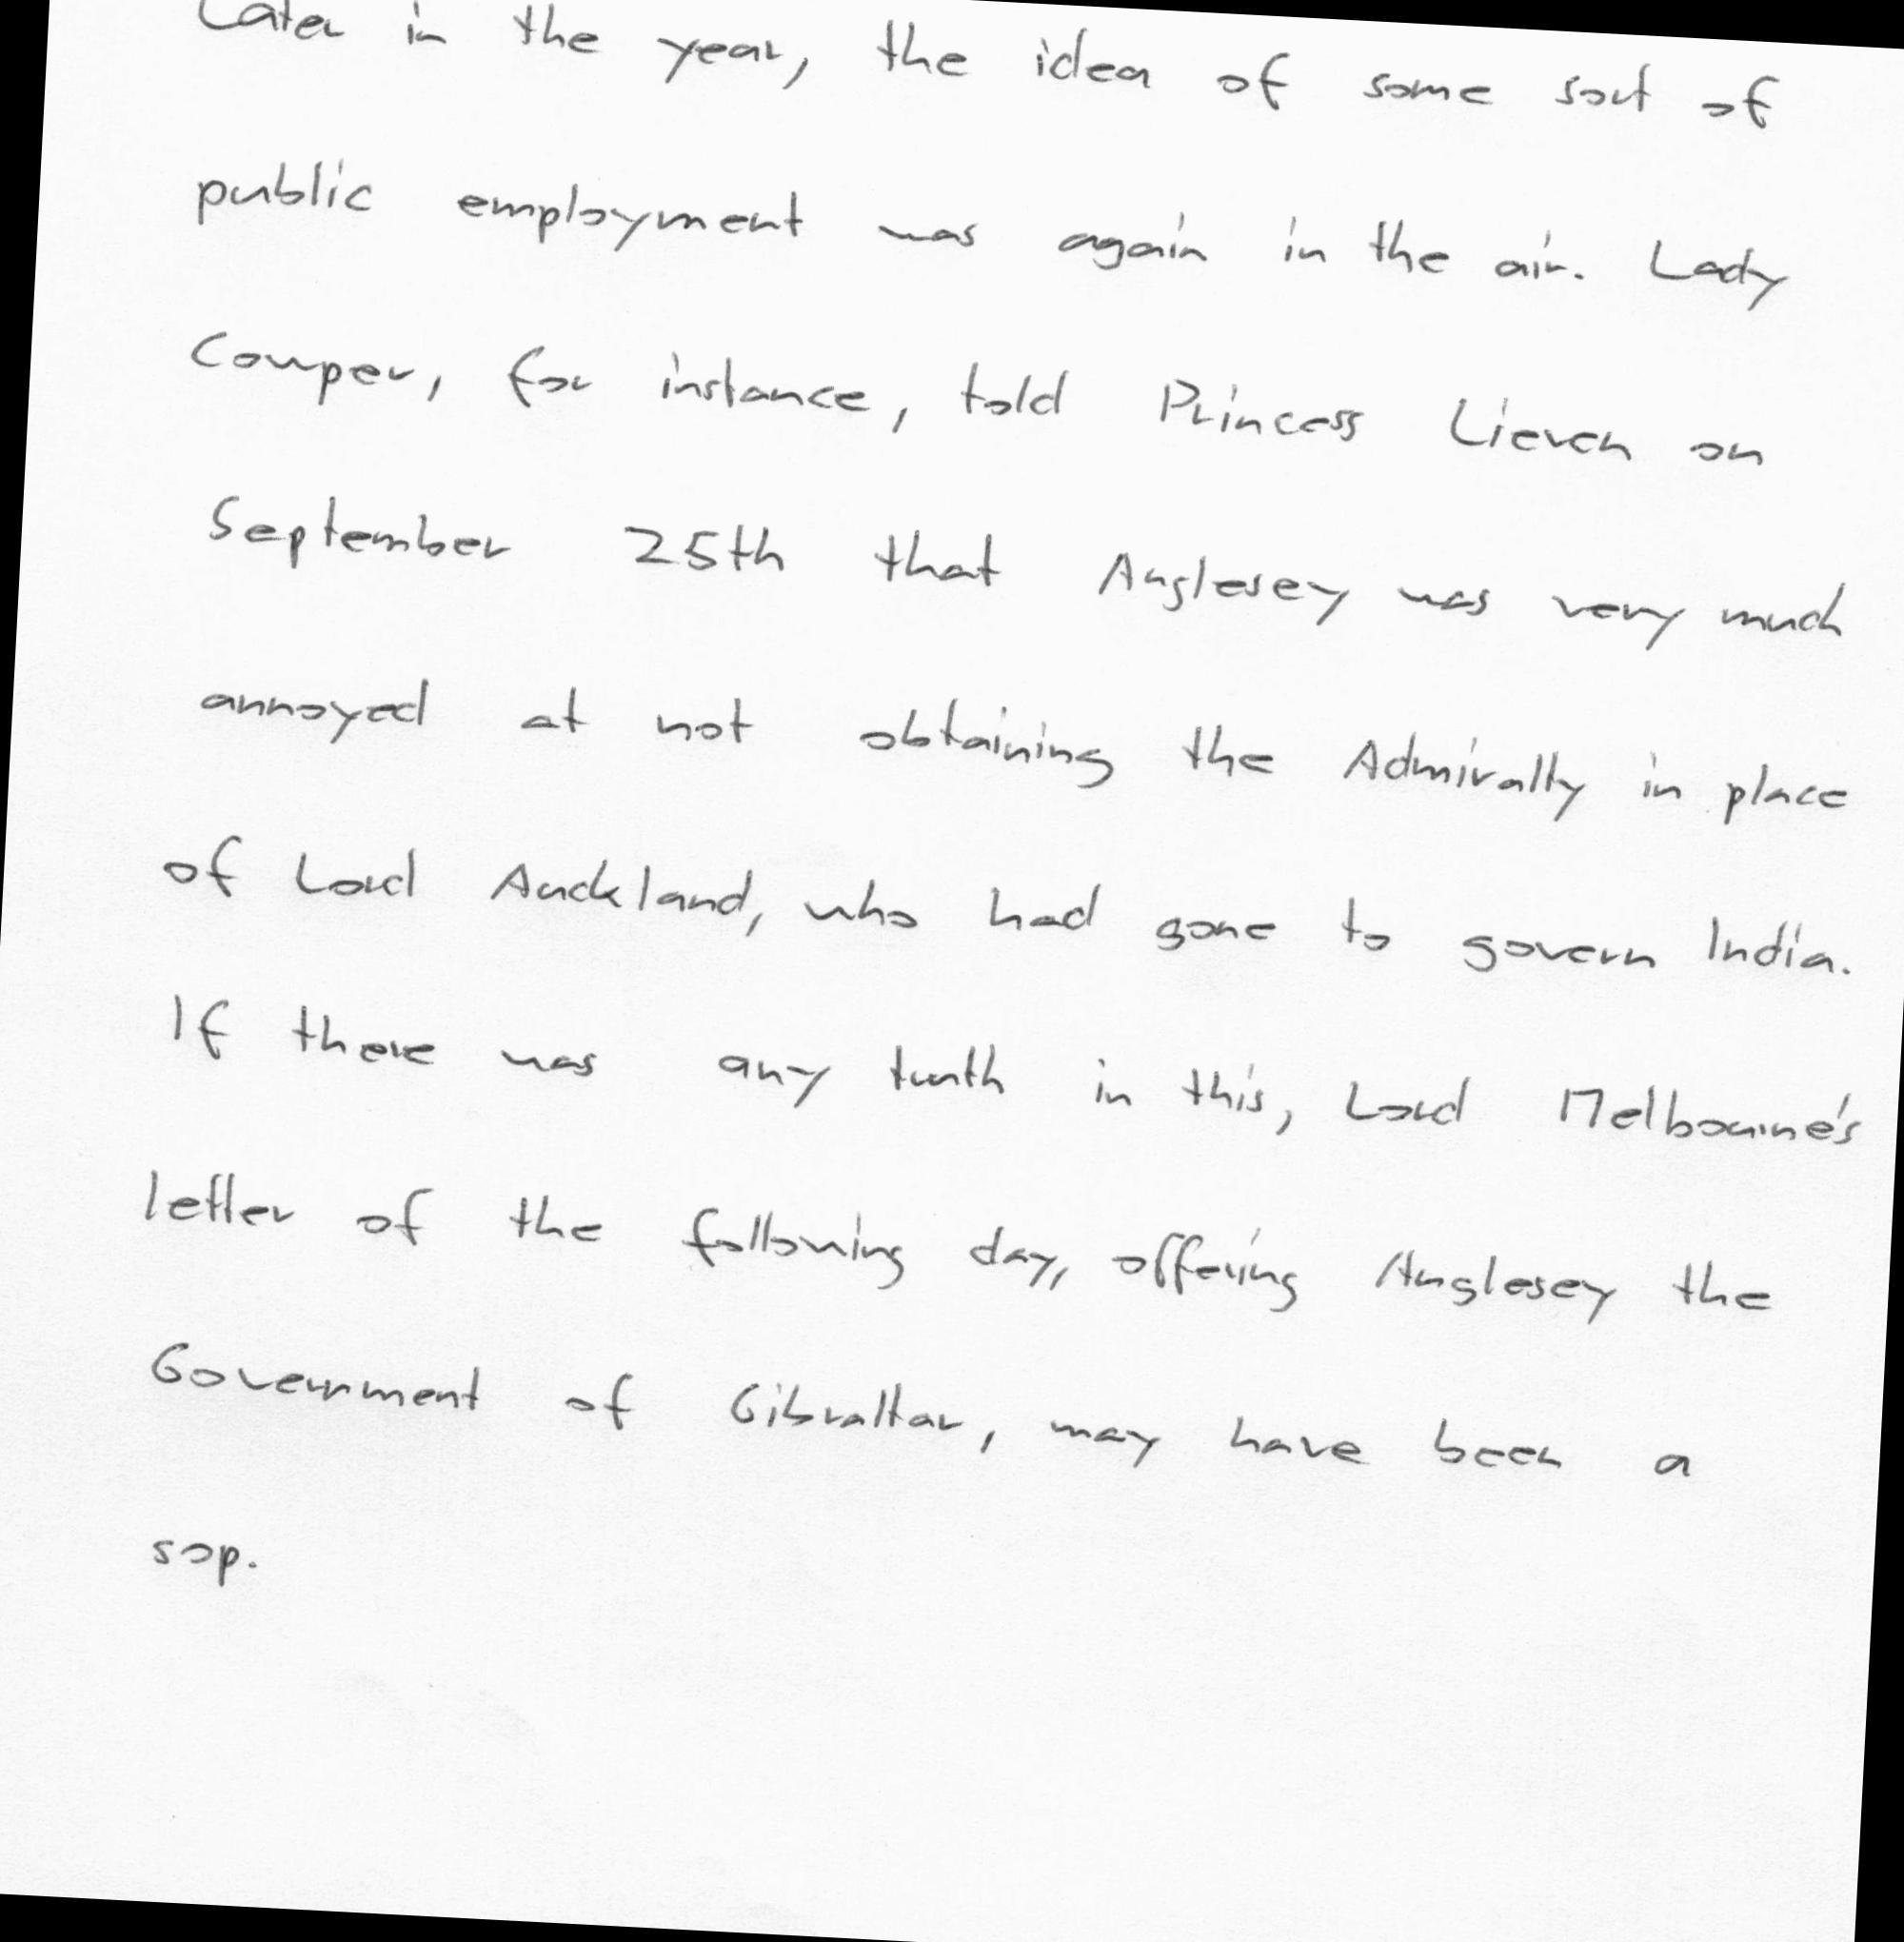 Later in the year, the idea of some sort of
public employment was again in the air. Lady
Cowper, for instance, told Princess Lieven on
September 25th that Anglesey was very much
annoyed at not obtaining the Admiralty in place
of Lord Auckland, who had gone to govern India.
If there was any truth in this, Lord Melbourne's
letter of the following day, offering Anglesey the
Government of Gibraltar, may have been a
sop.